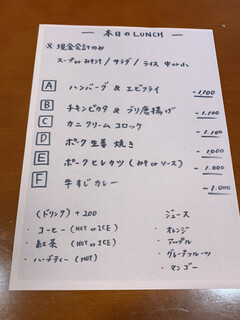 ― 本日のLUNCH ―
※ 現金会計のみ
スープ or みそ汁 / サラダ / ライス 中 or 小
A ハンバーグ & エビフライ -1,100
B チキンピカタ & ブリ唐揚げ -1,100
C カニクリームコロッケ -1,100
D ポーク生姜焼き -1,000
E ポークヒレカツ (みそ or ソース) -1,000
F 牛すじカレー -1,000
(ドリンク) +200
・コーヒー (HOT or ICE)
・紅茶 (HOT or ICE)
・ハーブティー (HOT)
ジュース
・オレンジ
・アップル
・グレープフルーツ
・マンゴー